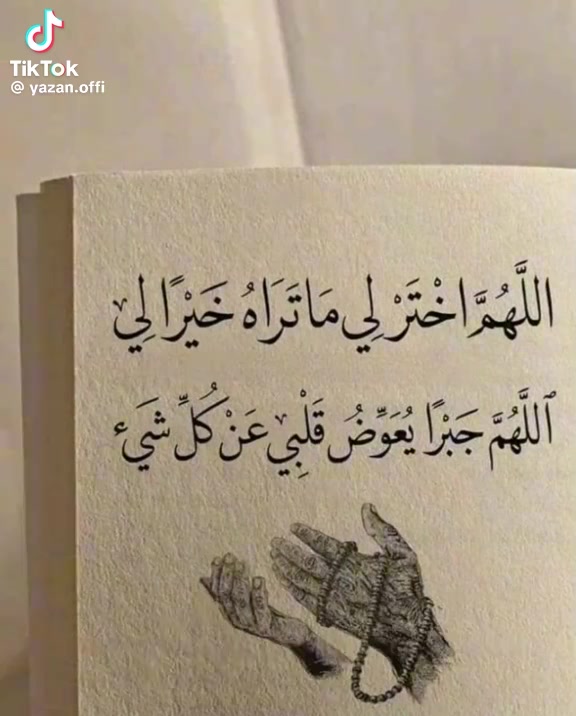 TikTok
@ yazan.offi
اللَّهُمَّ اخْتَرْ لِي مَا تَرَاهُ خَيْرًا لِي
ٱللَّهُمَّ جَبْرًا يُعَوِّضُ قَلْبِي عَنْ كُلِّ شَيْء